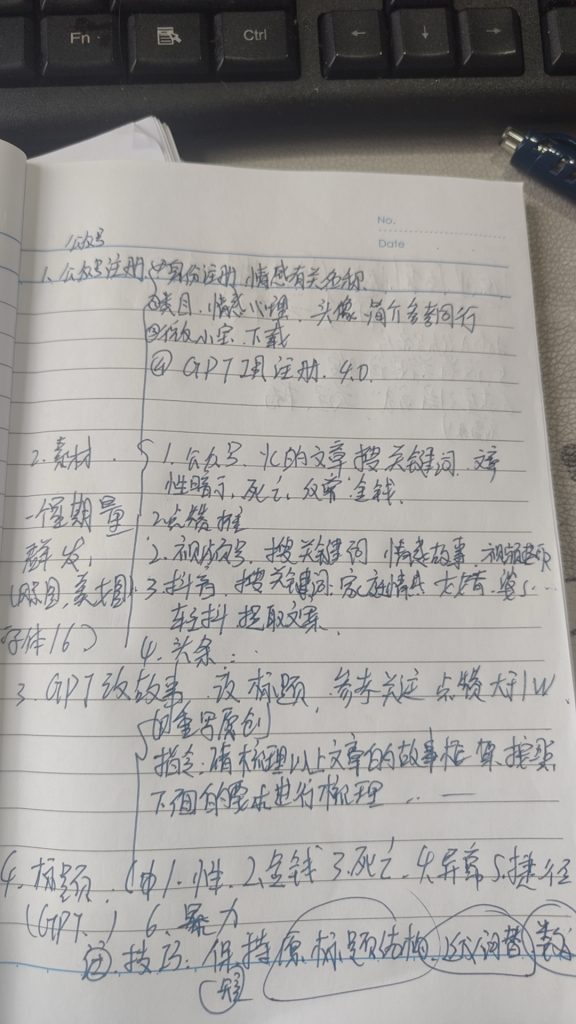 Fn
Ctrl
←
↓
→
No.
Date
公众号
1. 公众号注册 ①身份注册 情感有关名称
②类目. 情感心理. 头像 简介参考同行
③ 小宝 下载
④ GPT 注册. 4.0
2. 素材. 1. 公众号. 火的文章 搜关键词.
性暗示, 死亡, 金钱.
一个星期量 2 点赞 推
群发, 2. 视频号. 搜关键词 情感故事.
3. 抖音. 搜关键词. 家庭情
字体16) 轻抖 提取文案.
4. 头条..
3. GPT改故事 改标题, 参考关注 点赞大于1W
的重写原创
指令: 请梳理以上文章的故事框架. 按照
下面的要求进行梳理 .. —
4. 标题. 1. 性. 2. 金钱 3. 死亡. 4. 异常 5. 捷径
(GPT.) 6. 暴力
技巧: 保持原标题结构. 近义词替